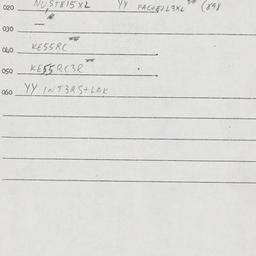 020 NUST815X2 YY PACUS1L3XL (898
030 —
040 KE55RC
050 KE55RC3R
060 YY INT3RS+LAK